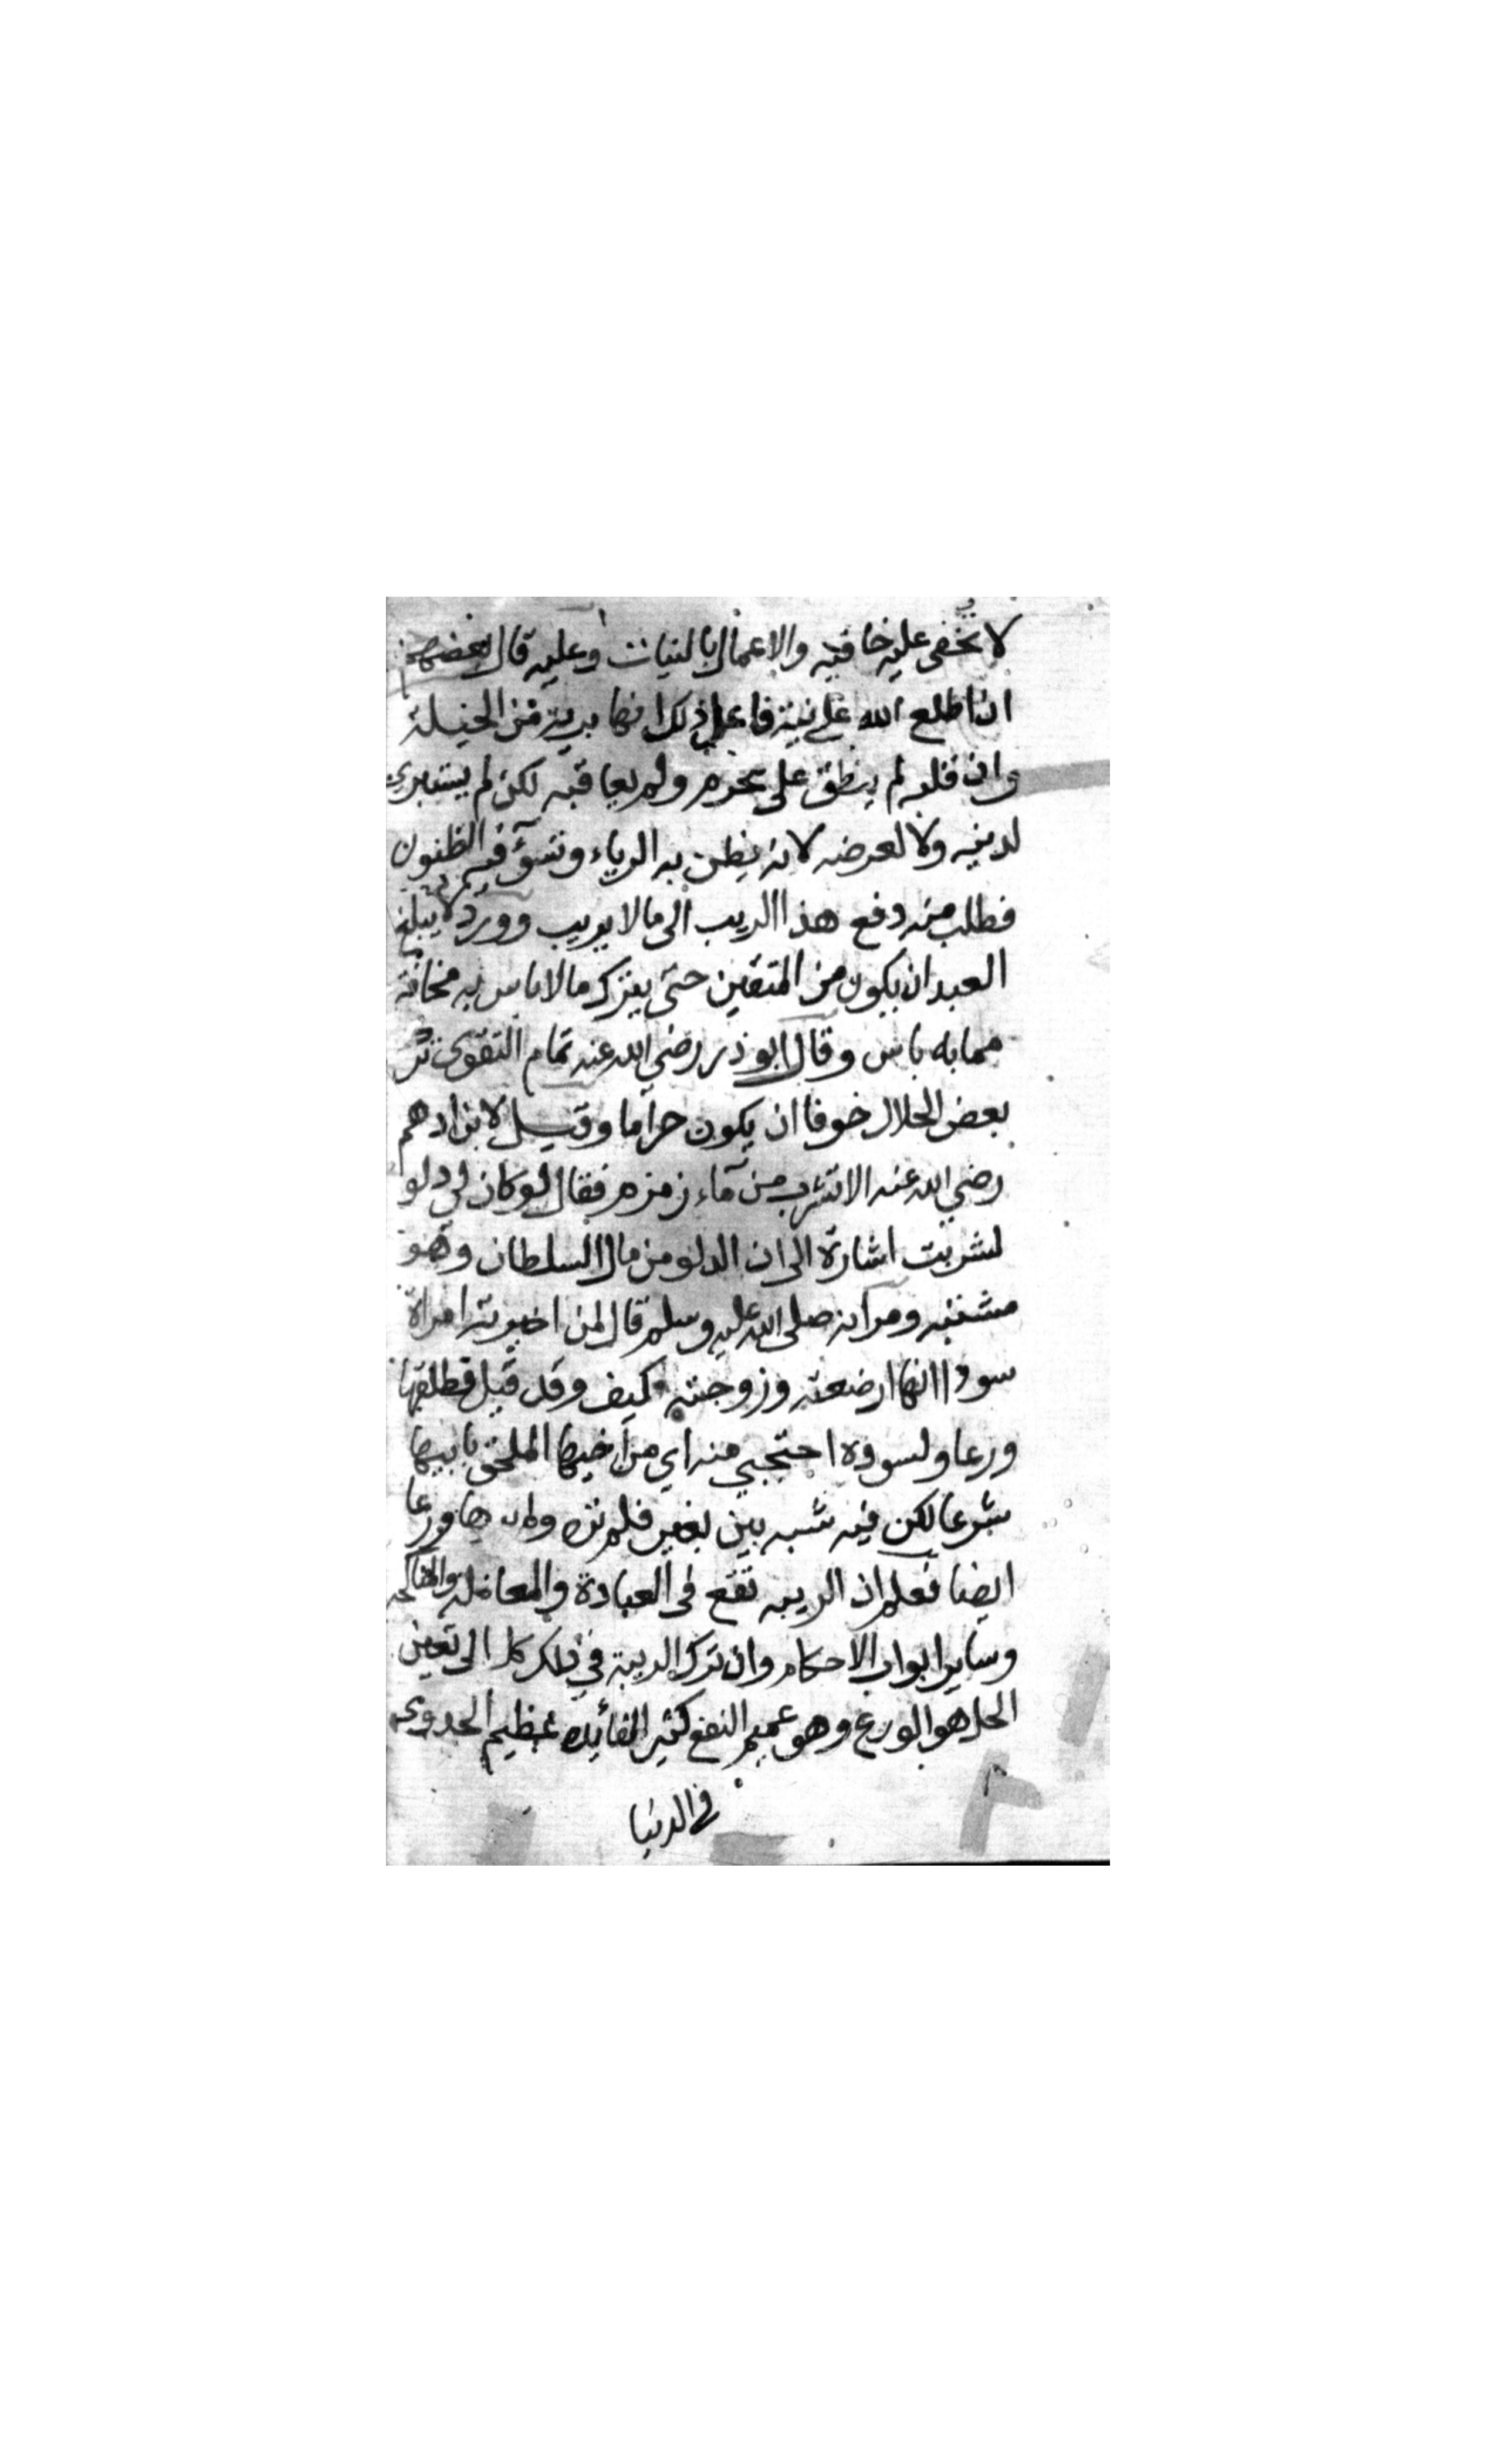 لا تخفى عليه خافيه والاعمال بالنيات وعليه قال بعضهم
ان اطلع الله على نية فاعل ذلك انها برية من الحيلة
وان فلم ينطق على محرم ولم يعاقبه لكن لم يستبرى
لدينه ولا لعرضه لانه يظن به الرياء وتسؤ فيه الظنون
فطلب منه دفع هذا الريب الى ما لا يريب وورد لا يبلغ
العبد ان يكون من المتقين حتى يترك ما لا باس به مخافة
مما به باس وقال ابو ذر رضي الله عنه تمام التقوى ترك
بعض الحلال خوفا ان يكون حراما وقيل لابن ادهم
رضي الله عنه الا تشرب من ماء زمزم فقال لو كان لي دلو
لشربت اشارة الى ان الدلو من مال السلطان وهو
مشتبه ومر انه صلى الله عليه وسلم قال لمن اخبرته امراة
سودا انها ارضعته وزوجته كيف وقد قيل فطلقها
ورعا ولسودة احتجبي منه اي من اخيها الملحق بابيها
شرعا لكن فيه شبه بين بغيره فلم تره ورعا
ايضا فعلم ان الريبه تقع فى العبادة والمعامله والمناكحه
وساير ابواب الاحكام وان ترك الريبة في ذلك كله الى تعين
الحل هو الورع وهو عميم النفع كثير الفائده عظيم الجدوى
في الدنيا